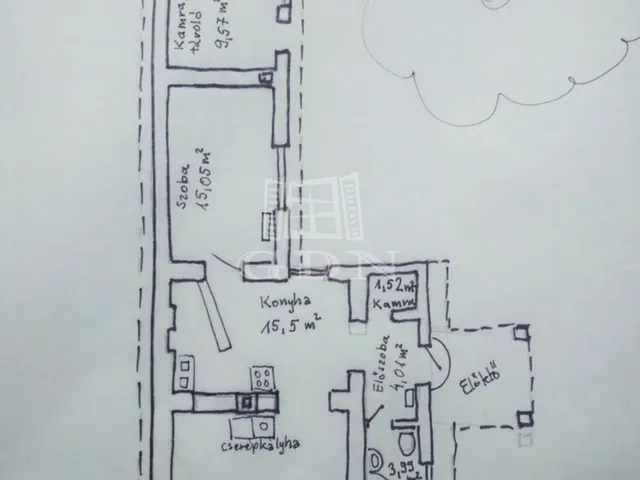 Kamra
tároló
9,57 m²
Szoba
15,05 m²
GDN
Konyha
15,5 m²
1,52 m²
Kamra
Előszoba
4,01 m²
Előtető
cserépkályha
3,99
m²